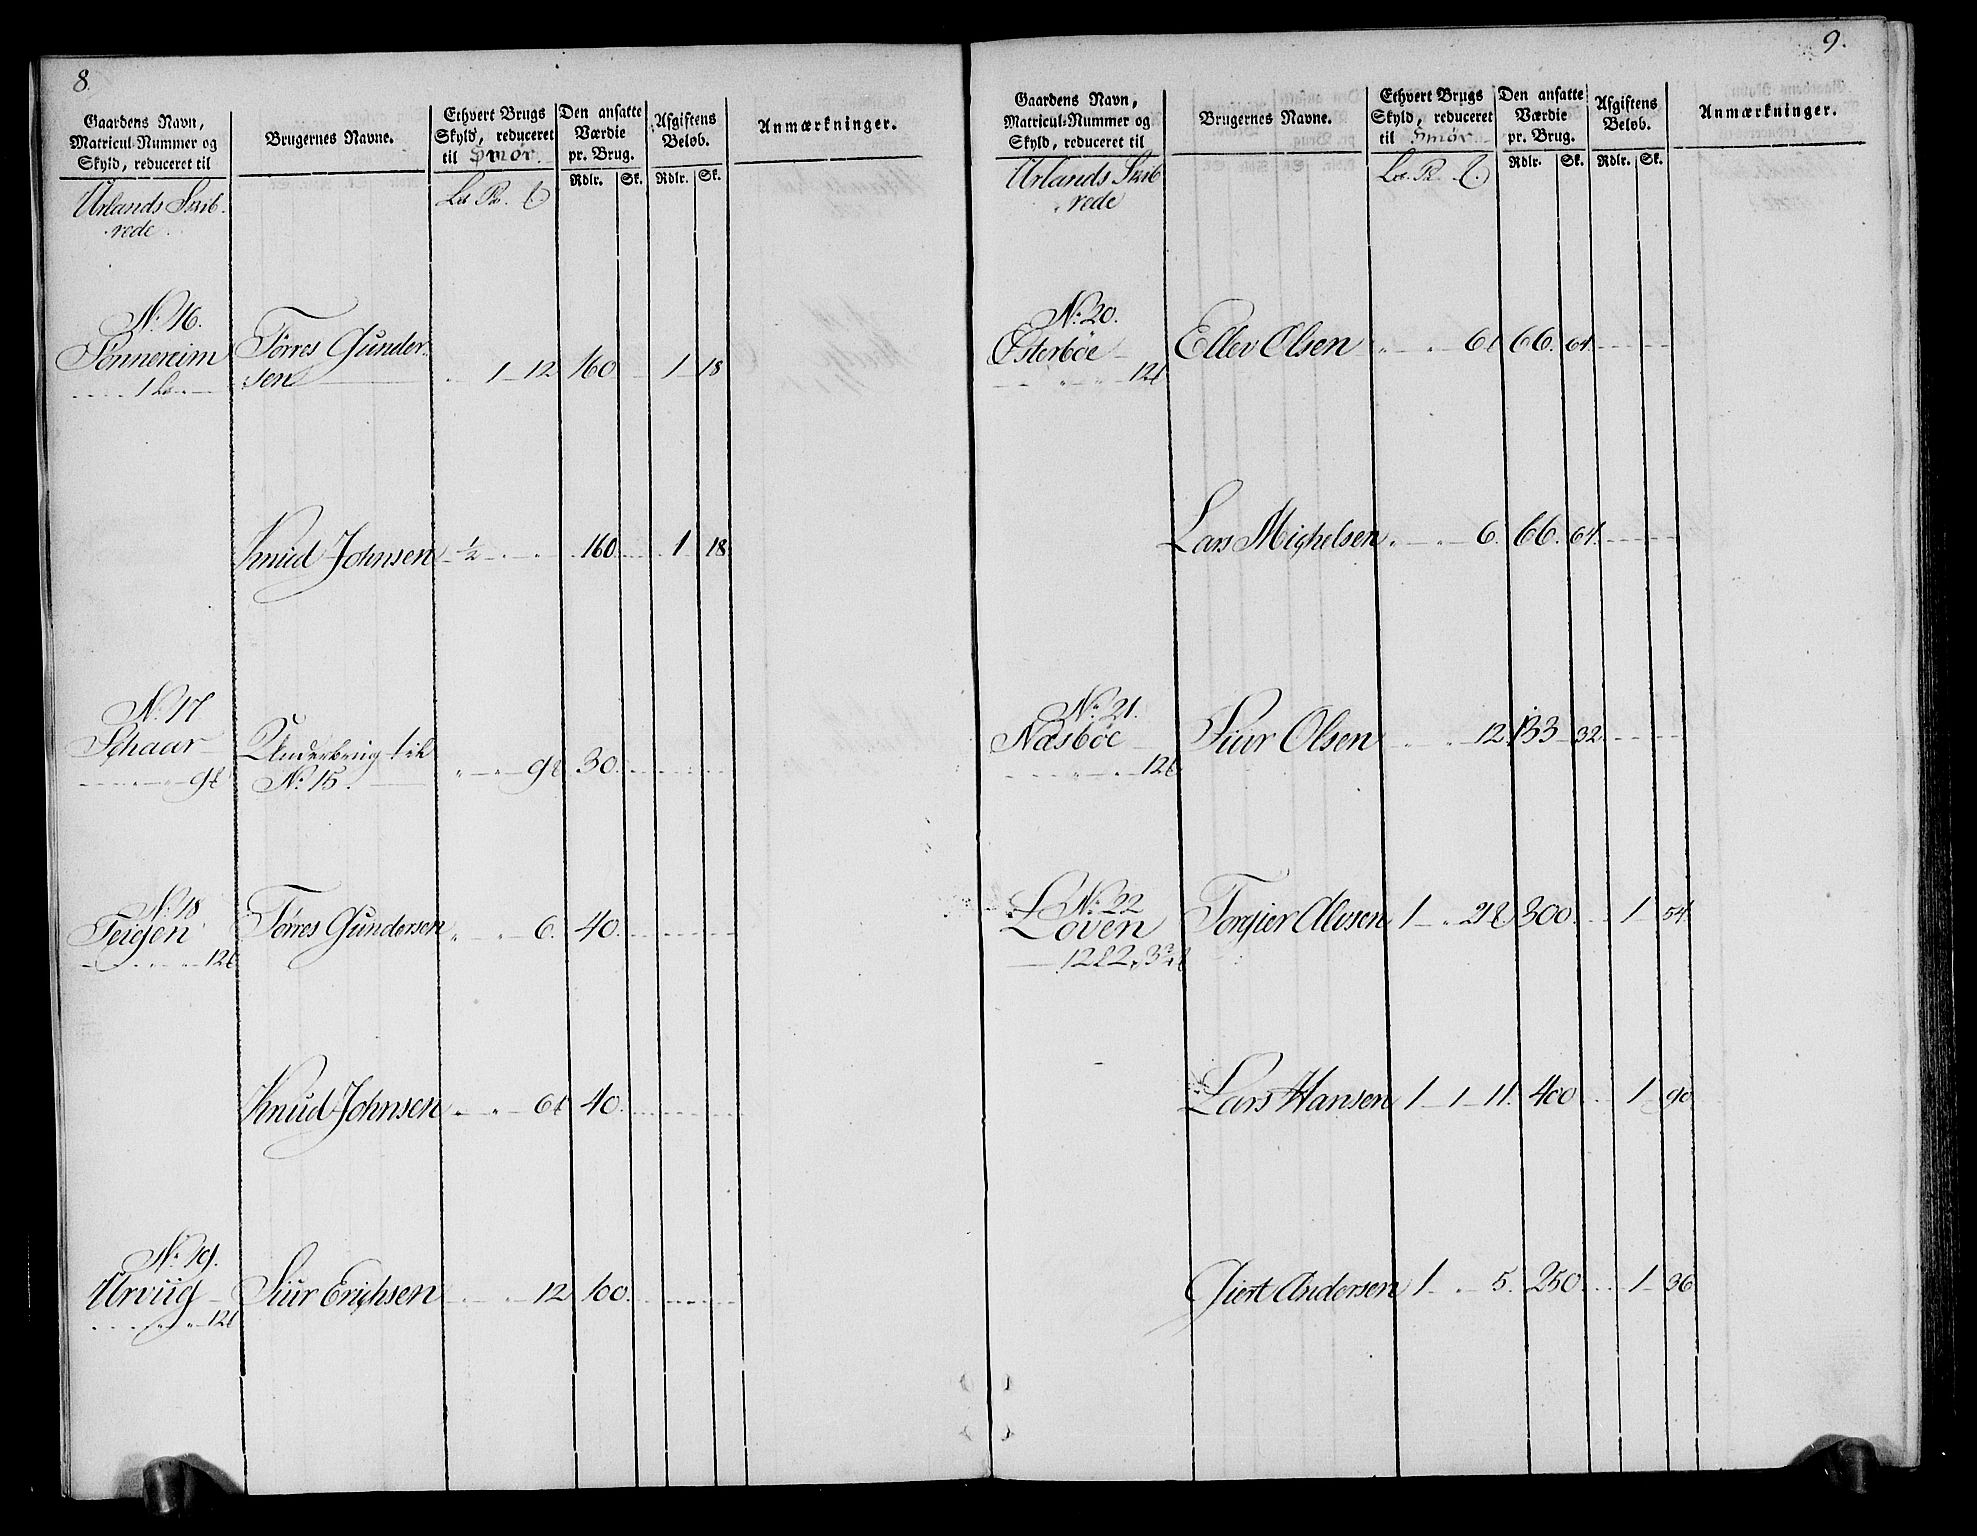 8.
Gaardens Navn,
Matricul-Nummer og
Skyld, reduceret til
Brugernes Navne.
Ethvert Brugs
Skyld, reduceret
til Smør.
Den ansatte
Værdie
pr. Brug.
Rdlr. Sk.
Afgiftens
Beløb.
Rdlr. Sk.
Anmærkninger.
Urlands Skib-
rede
N: 16.
Sønnereim
Tørres Gunder-
sen 1 12 160 1 18
Knud Johnsen ½ 160 1 18
N: 17
Schaar
9
Underbrug til
N: 15. 9 30
N: 18
Teigen
12
Tørres Gundersen 6. 40
Knud Johnsen 6 40
N: 19.
Urvug
12
Siur Erichsen 12 100
9.
Gaardens Navn,
Matricul-Nummer og
Skyld, reduceret til
Brugernes Navne.
Ethvert Brugs
Skyld, reduceret
til Smør
Den ansatte
Værdie
pr. Brug.
Rdlr. Sk.
Afgiftens
Beløb.
Rdlr. Sk.
Anmærkninger.
Urlands Skib-
rede
N: 20.
Østerbøe
12
Ellev Olsen 6 66. 64.
Lars Mighelsen 6. 66. 64.
N: 21.
Næsbøe
12
Siur Olsen 12 133 32
N: 22
Loven
Torgier Olvsen 1 21 300 1 54
Lars Hansen 1 1 11. 400 1 90
Giert Andersen 1 5. 250 1 36